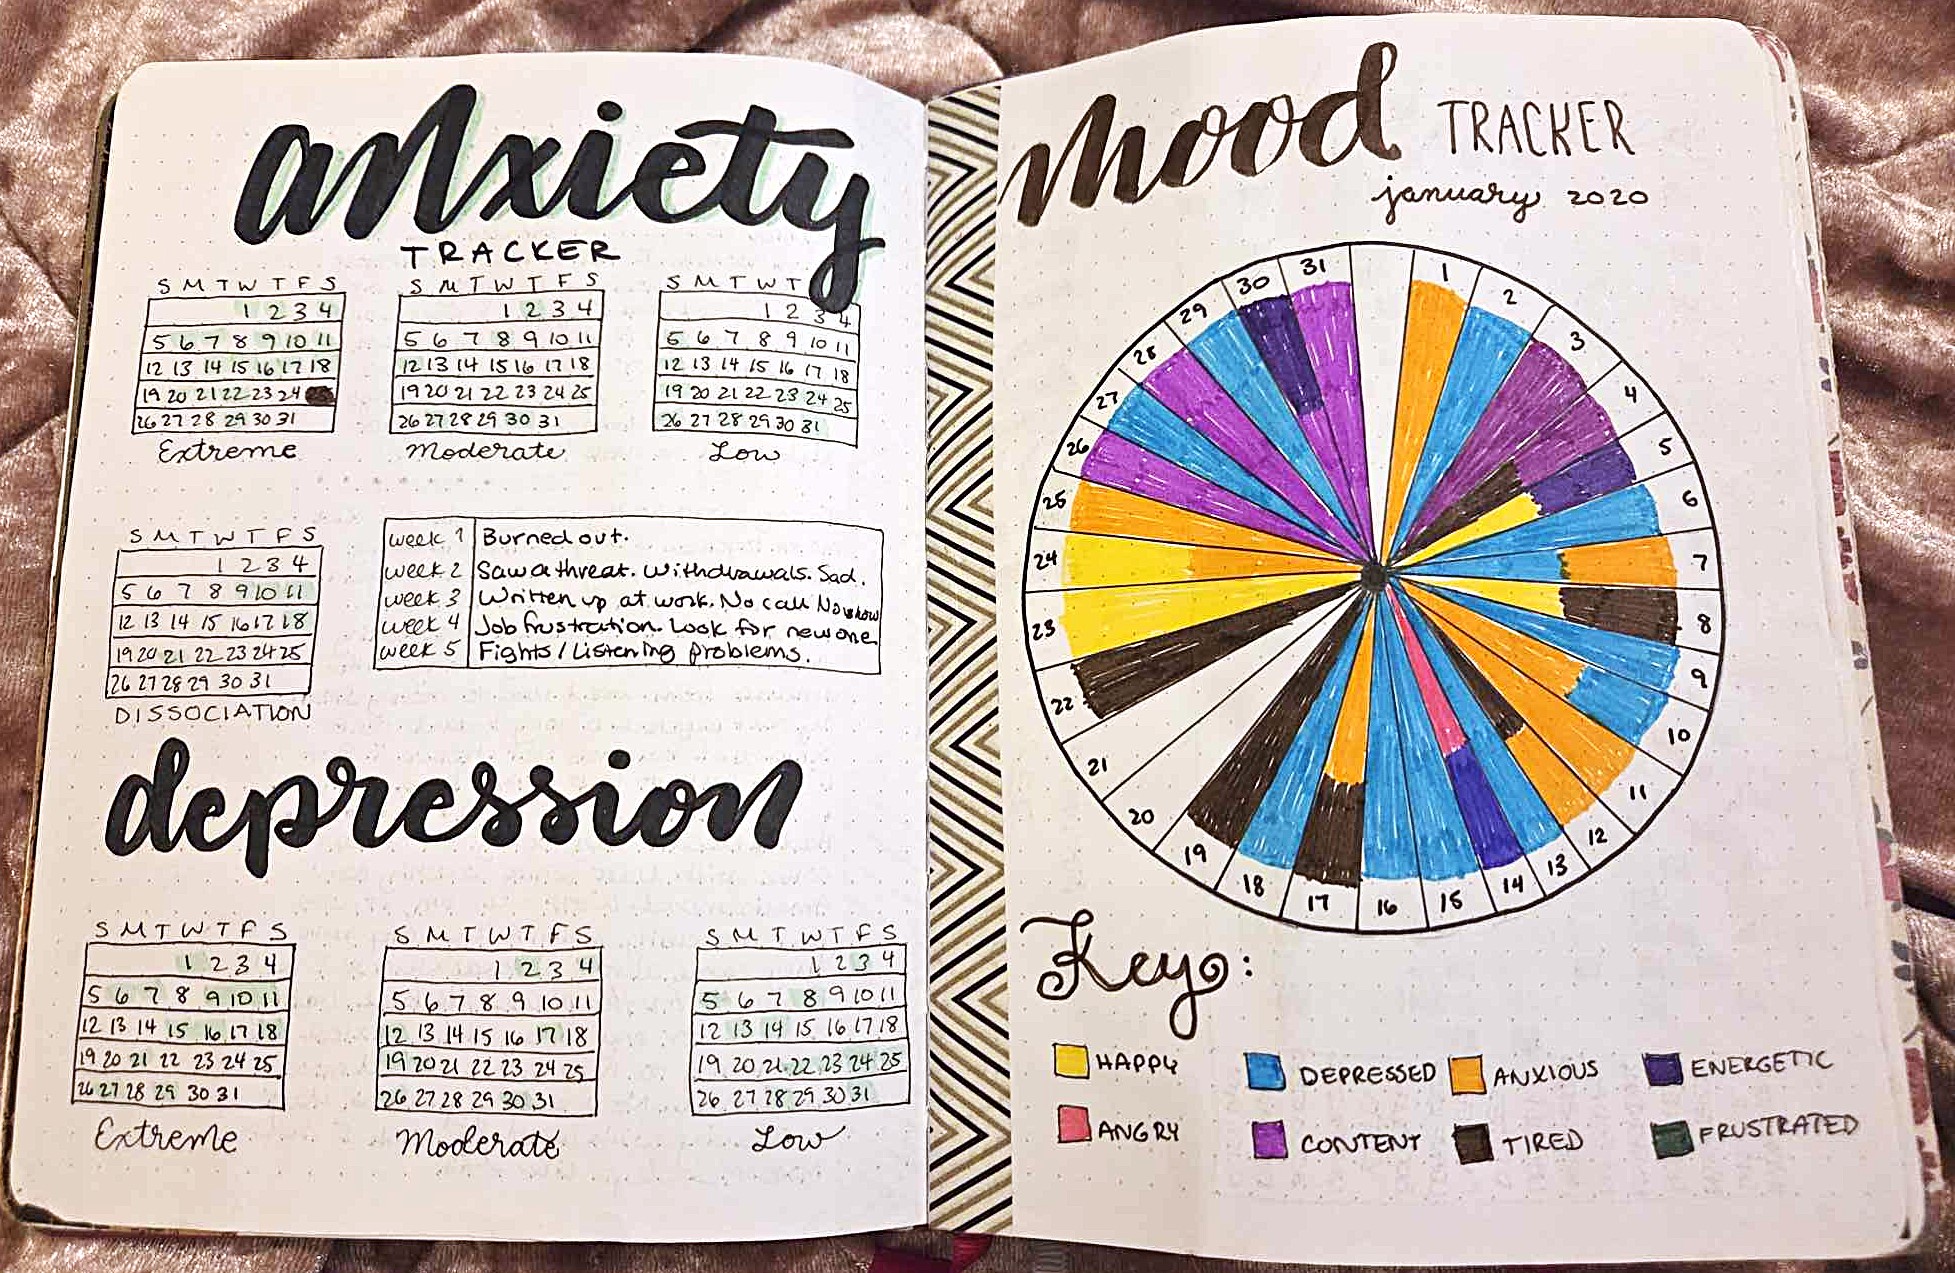 anxiety
TRACKER
S M T W T F S
1 2 3 4
5 6 7 8 9 10 11
12 13 14 15 16 17 18
19 20 21 22 23 24
26 27 28 29 30 31
Extreme
S M T W T F S
1 2 3 4
5 6 7 8 9 10 11
12 13 14 15 16 17 18
19 20 21 22 23 24 25
26 27 28 29 30 31
Moderate
S M T W T
1 2 3 4
5 6 7 8 9 10 11
12 13 14 15 16 17 18
19 20 21 22 23 24 25
26 27 28 29 30 31
Low
S M T W T F S
1 2 3 4
5 6 7 8 9 10 11
12 13 14 15 16 17 18
19 20 21 22 23 24 25
26 27 28 29 30 31
DISSOCIATION
week 1 Burned out.
week 2 Saw a threat. Withdrawals. Sad.
week 3 Written up at work. No call No show
week 4 Job frustration. Look for new one
week 5 Fights / Listening problems.
depression
S M T W T F S
1 2 3 4
5 6 7 8 9 10 11
12 13 14 15 16 17 18
19 20 21 22 23 24 25
26 27 28 29 30 31
Extreme
S M T W T F S
1 2 3 4
5 6 7 8 9 10 11
12 13 14 15 16 17 18
19 20 21 22 23 24 25
26 27 28 29 30 31
Moderate
S M T W T F S
1 2 3 4
5 6 7 8 9 10 11
12 13 14 15 16 17 18
19 20 21 22 23 24 25
26 27 28 29 30 31
Low
mood TRACKER
january 2020
1
2
3
4
5
6
7
8
9
10
11
12
13
14
15
16
17
18
19
20
21
22
23
24
25
26
27
28
29
30
31
Key:
HAPPY DEPRESSED ANXIOUS ENERGETIC
ANGRY CONTENT TIRED FRUSTRATED